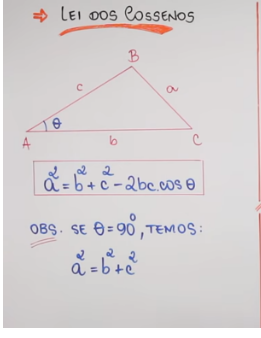 ⇒ LEI DOS COSSENOS
B
c
a
θ
A
b
C
a² = b² + c² - 2bc.cos θ
OBS. SE θ = 90⁰, TEMOS:
a² = b² + c²